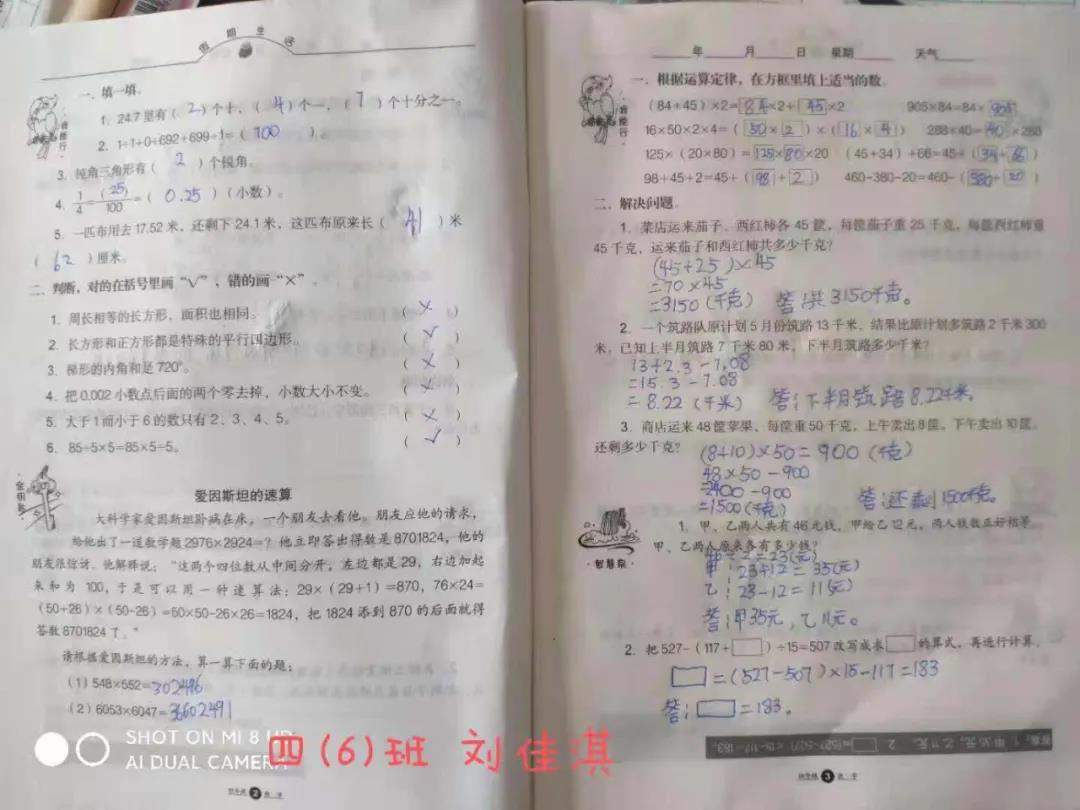 假期生活
一、填一填。
1. 24.7里有（2）个十，（4）个一，（7）个十分之一。
2. 1÷1+0÷692+699÷1=（700）。
3. 钝角三角形有（2）个锐角。
4. 1/4=（25）/100=（0.25）（小数）。
5. 一匹布用去17.52米，还剩下24.1米，这匹布原来长（41）米
（62）厘米。
二、判断，对的在括号里画“√”，错的画“×”。
1. 周长相等的长方形，面积也相同。（×）
2. 长方形和正方形都是特殊的平行四边形。（√）
3. 梯形的内角和是720°。（×）
4. 把0.002小数点后面的两个零去掉，小数大小不变。（×）
5. 大于1而小于6的数只有2、3、4、5。（×）
6. 85÷5×5=85×5÷5。（√）
爱因斯坦的速算
大科学家爱因斯坦卧病在床，一个朋友去看他。朋友应他的请求，
给他出了一道数学题2976×2924=？他立即答出得数是8701824，他的
朋友很惊讶。他解释说：“这两个四位数从中间分开，左边都是29，右边加起
来和为100，于是可以用一种速算法：29×（29+1）=870，76×24=
（50+26）×（50-26）=50×50-26×26=1824，把1824添到870的后面就得
答数8701824了。”
请根据爱因斯坦的方法，算一算下面的题：
（1）548×552=302496
（2）6053×6047=36602491
SHOT ON MI 8
AI DUAL CAMERA
四年级 2 数学
年 月 日 星期 天气
一、根据运算定律，在方框里填上适当的数。
（84+45）×2=84×2+45×2 905×84=84×905
16×50×2×4=（50×2）×（16×4） 288×40=40×288
125×（20×80）=125×80×20 （45+34）+66=45+（34+66）
98+45+2=45+（98+2） 460-380-20=460-（380+20）
二、解决问题。
1. 菜店运来茄子、西红柿各45筐，每筐茄子重25千克，每筐西红柿重
45千克，运来茄子和西红柿共多少千克？
(45+25)×45
=70×45
=3150(千克) 答:共3150千克。
2. 一个筑路队原计划5月份筑路13千米，结果比原计划多筑路2千米300
米，已知上半月筑路7千米80米，下半月筑路多少千米？
13+2.3-7.08
=15.3-7.08
=8.22(千米) 答:下半月筑路8.22千米。
3. 商店运来48筐苹果，每筐重50千克，上午卖出8筐，下午卖出10筐，
还剩多少千克？ (8+10)×50=900(千克)
48×50-900
=2400-900
=1500(千克) 答:还剩1500千克。
1. 甲、乙两人共有46元钱，甲给乙12元，两人钱数正好相等，
甲、乙两人原来各有多少钱？
46÷2=23(元)
甲:23+12=35(元)
乙:23-12=11(元)
答:甲35元,乙11元。
智慧泉
2. 把527-（117+□）÷15=507改写成求□的算式，再进行计算。
□=(527-507)×15-117=183
答:□=183。
答案：1. 甲35元，乙11元。 2. □=（527-507）×15-117=183。
四年级 3 数学
四(6)班 刘佳淇